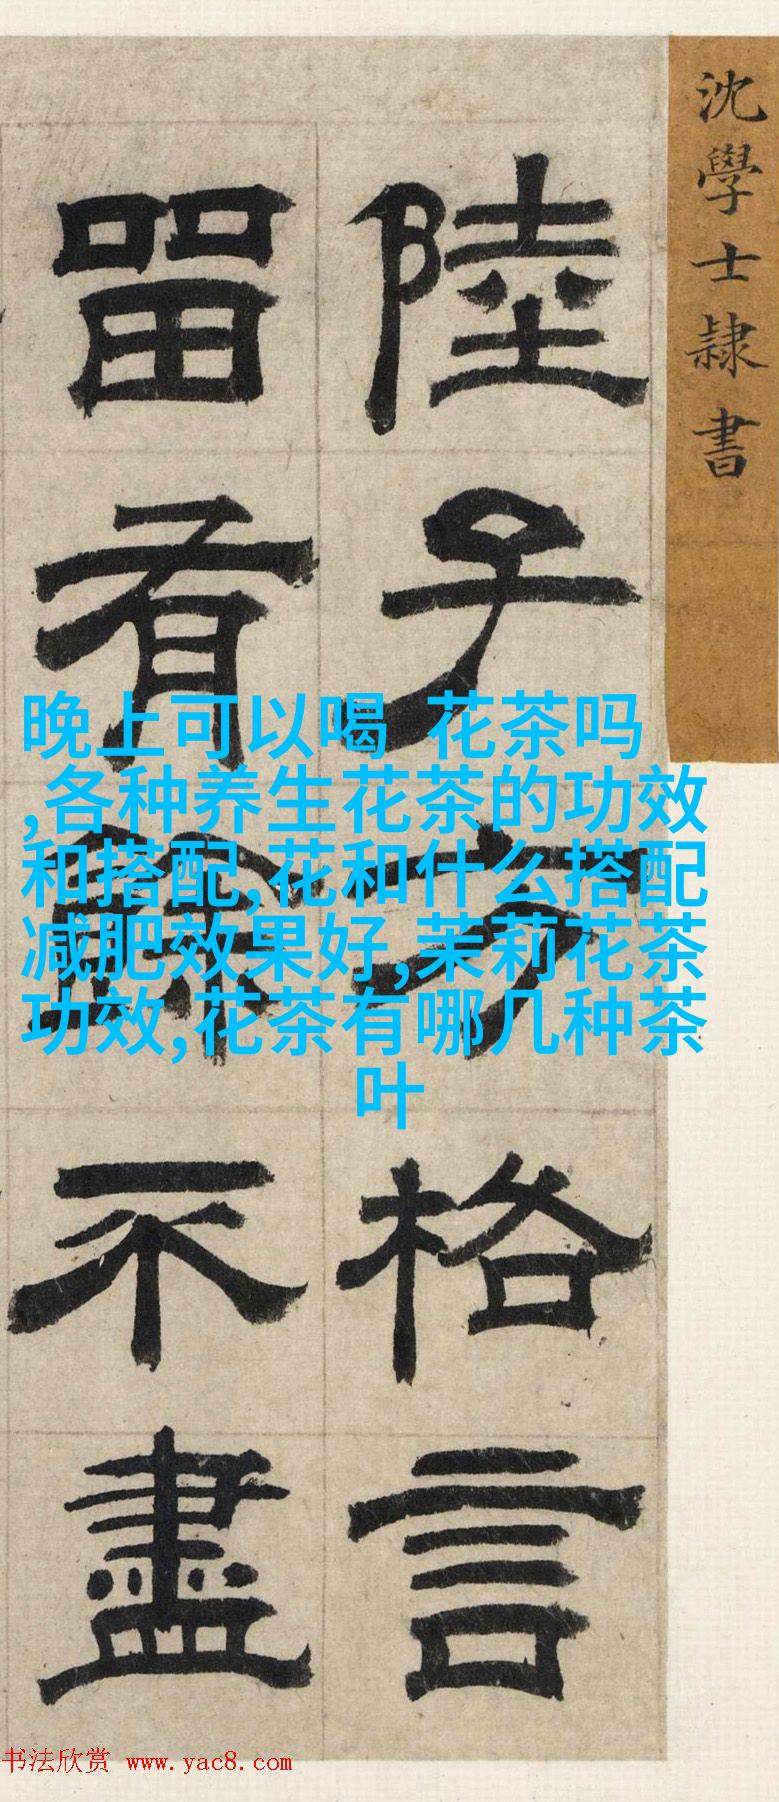 沈學士隸書
陸子方格言
留有餘不盡
晚上可以喝 花茶吗
,各种养生花茶的功效
和搭配,花和什么搭配
减肥效果好,茉莉花茶
功效,花茶有哪几种茶
叶
书法欣赏 www.yac8.com